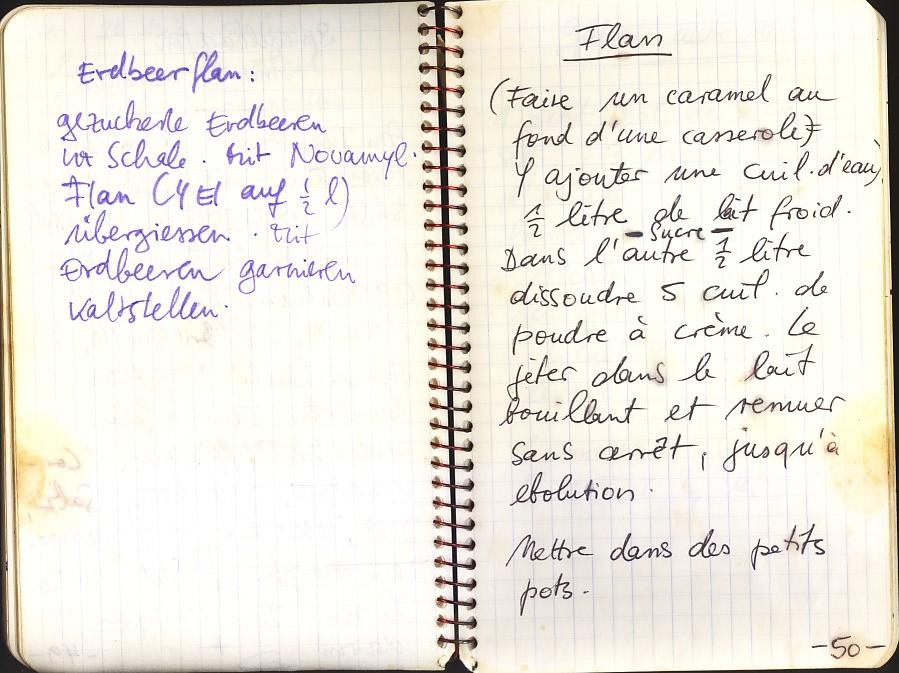 Erdbeerflan:
gezuckerte Erdbeeren
in Schale. Mit Novamyl.
Flan (4 El auf ½ l)
übergiessen. Mit
Erdbeeren garnieren
kaltstellen.
Flan
(Faire un caramel au
fond d'une casserole)
Y ajouter une cuil. d'eau,
½ litre de lait froid.
- Sucre -
Dans l'autre ½ litre
dissoudre 5 cuil. de
poudre à crème. Le
jeter dans le lait
bouillant et remuer
sans arrêt, jusqu'à
ebolution.
Mettre dans des petits
pots.
-50-